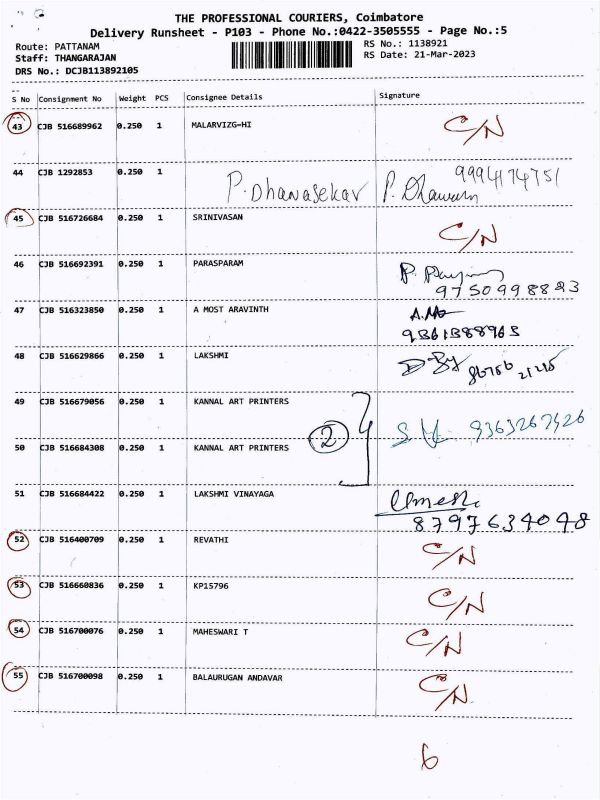 THE PROFESSIONAL COURIERS, Coimbatore
Delivery Runsheet - P103 - Phone No.:0422-3505555 - Page No.:5
Route: PATTANAM RS No.: 1138921
Staff: THANGARAJAN RS Date: 21-Mar-2023
DRS No.: DCJB113892105
S No Consignment No Weight PCS Consignee Details Signature
43 CJB 516689962 0.250 1 MALARVIZG=HI C/N
44 CJB 1292853 0.250 1 P. Dhanasekar 9994174751
45 CJB 516726684 0.250 1 SRINIVASAN C/N
46 CJB 516692391 0.250 1 PARASPARAM
9750998823
47 CJB 516323850 0.250 1 A MOST ARAVINTH
9361388963
48 CJB 516629866 0.250 1 LAKSHMI
49 CJB 516679056 0.250 1 KANNAL ART PRINTERS
2 9363267426
50 CJB 516684308 0.250 1 KANNAL ART PRINTERS
51 CJB 516684422 0.250 1 LAKSHMI VINAYAGA Umesh
8797634048
52 CJB 516400709 0.250 1 REVATHI C/N
53 CJB 516660836 0.250 1 KP15796 C/N
54 CJB 516700076 0.250 1 MAHESWARI T C/N
55 CJB 516700098 0.250 1 BALAURUGAN ANDAVAR C/N
6